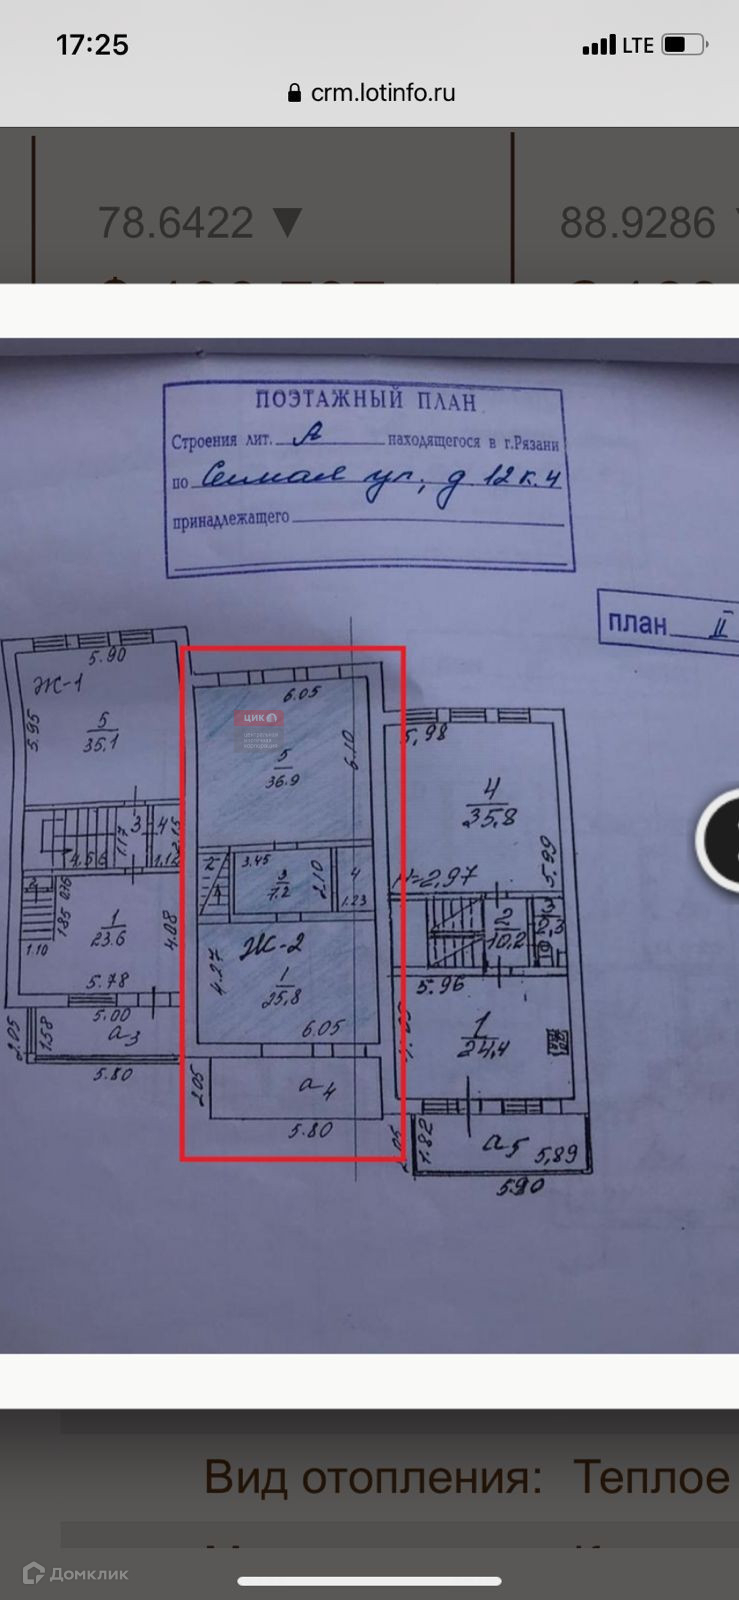 17:25
LTE
crm.lotinfo.ru
78.6422 ▼
88.9286
ПОЭТАЖНЫЙ ПЛАН
Строения лит. А находящегося в г.Рязани
по Семашко ул, д 12 к. 4
принадлежащего
план II
5.90
Ж-1
5.95
5
35.1
6.05
ЦИК
5
36.9
6.10
5,98
4
35,8
5.99
Н=2,97
3
4
1.17
1.12
2
3.45
3
7.2
2.10
4
1.23
2
10.2
3
2,3
1
23.6
1.10
4.08
5.78
Ж-2
4.27
1
25,8
6.05
5.96
1
24,4
5.00
а3
2.05
1.58
5.80
2.05
а4
5.80
2.05
1.82
а5
5,89
5.90
Вид отопления: Теплое
Домклик